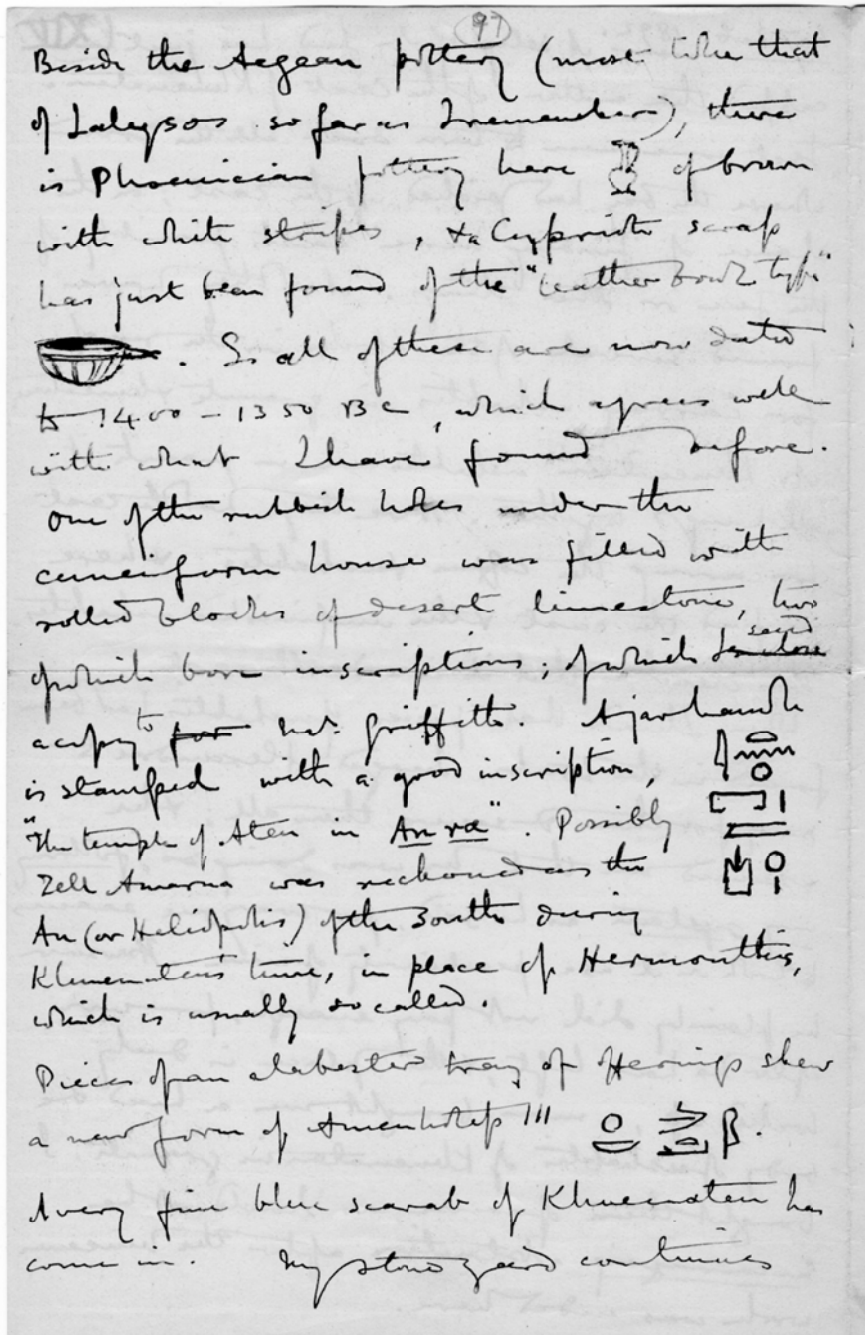 97
Beside the Aegean pottery (most like that
of Ialysos so far as I remember), there
is Phoenician pottery here of brown
with white stripes, & a Cypriote scrap
has just been found of the "leather bowl type"
. So all of these are now dated
to 1400 – 1350 BC, which agrees well
with what I have found before.
One of the rubbish holes under the
cuneiform house was filled with
rolled blocks of desert limestone, two
of which bore inscriptions; of which I send
a copy to for Mr. Griffith. A jar handle
is stamped with a good inscription,
"The temple of Aten in An ra". Possibly
Tell Amarna was reckoned as the
An (or Heliopolis) of the South during
Khuenaten's time, in place of Hermonthis,
which is usually so called.
Pieces of an alabaster tray of offerings shew
a new form of Amenhotep III
A very fine blue scarab of Khuenaten has
come in. My stone yard continues